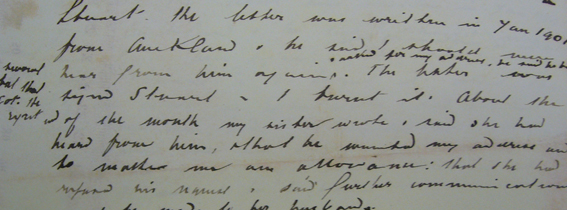 Stuart. the letter was written in Jan 1901
from Auckland, he said I should never
asked for my address. he said he
hear from him again. The letter was
signed Stuart - I burnt it. About the
of the month my sister wrote, said she had
heard from him, & that he wanted my address and
to make me an allowance: that she had
refused his request, & said further communication
to be made to her husband.
never
had that
got. the